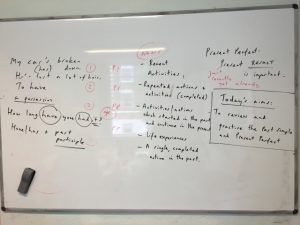 My car's broken
(has) down. (1)
He's lost a lot of hair.
To have (2)
a possession
How long have you had it?
Have/has + past
participle
- Recent
Activities
- Repeated actions +
activities (completed)
- Activities/actions
which started in the past
and continue in the present
- Life experiences
- A single, completed
action in the past.
Present Perfect:
Present Result
is important.
Just
recently
yet already
Today's aims:
To review and
practise the Past simple
and Present Perfect